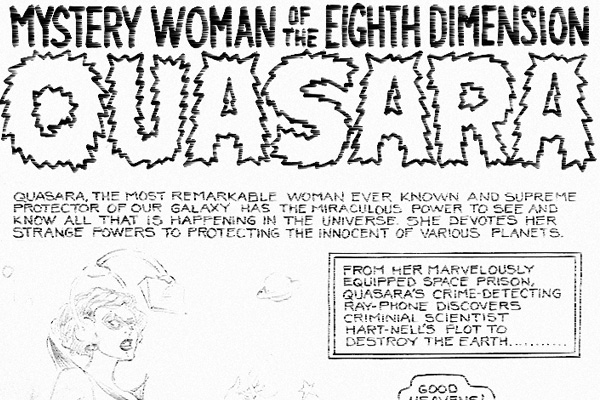 MYSTERY WOMAN OF THE EIGHTH DIMENSION
QUASARA
QUASARA, THE MOST REMARKABLE WOMAN EVER KNOWN AND SUPREME
PROTECTOR OF OUR GALAXY HAS THE MIRACULOUS POWER TO SEE AND
KNOW ALL THAT IS HAPPENING IN THE UNIVERSE. SHE DEVOTES HER
STRANGE POWERS TO PROTECTING THE INNOCENT OF VARIOUS PLANETS.
FROM HER MARVELOUSLY
EQUIPPED SPACE PRISON,
QUASARA'S CRIME-DETECTING
RAY-PHONE DISCOVERS
CRIMINIAL SCIENTIST
HART-NELL'S PLOT TO
DESTROY THE EARTH...........
GOOD
HEAVENS!